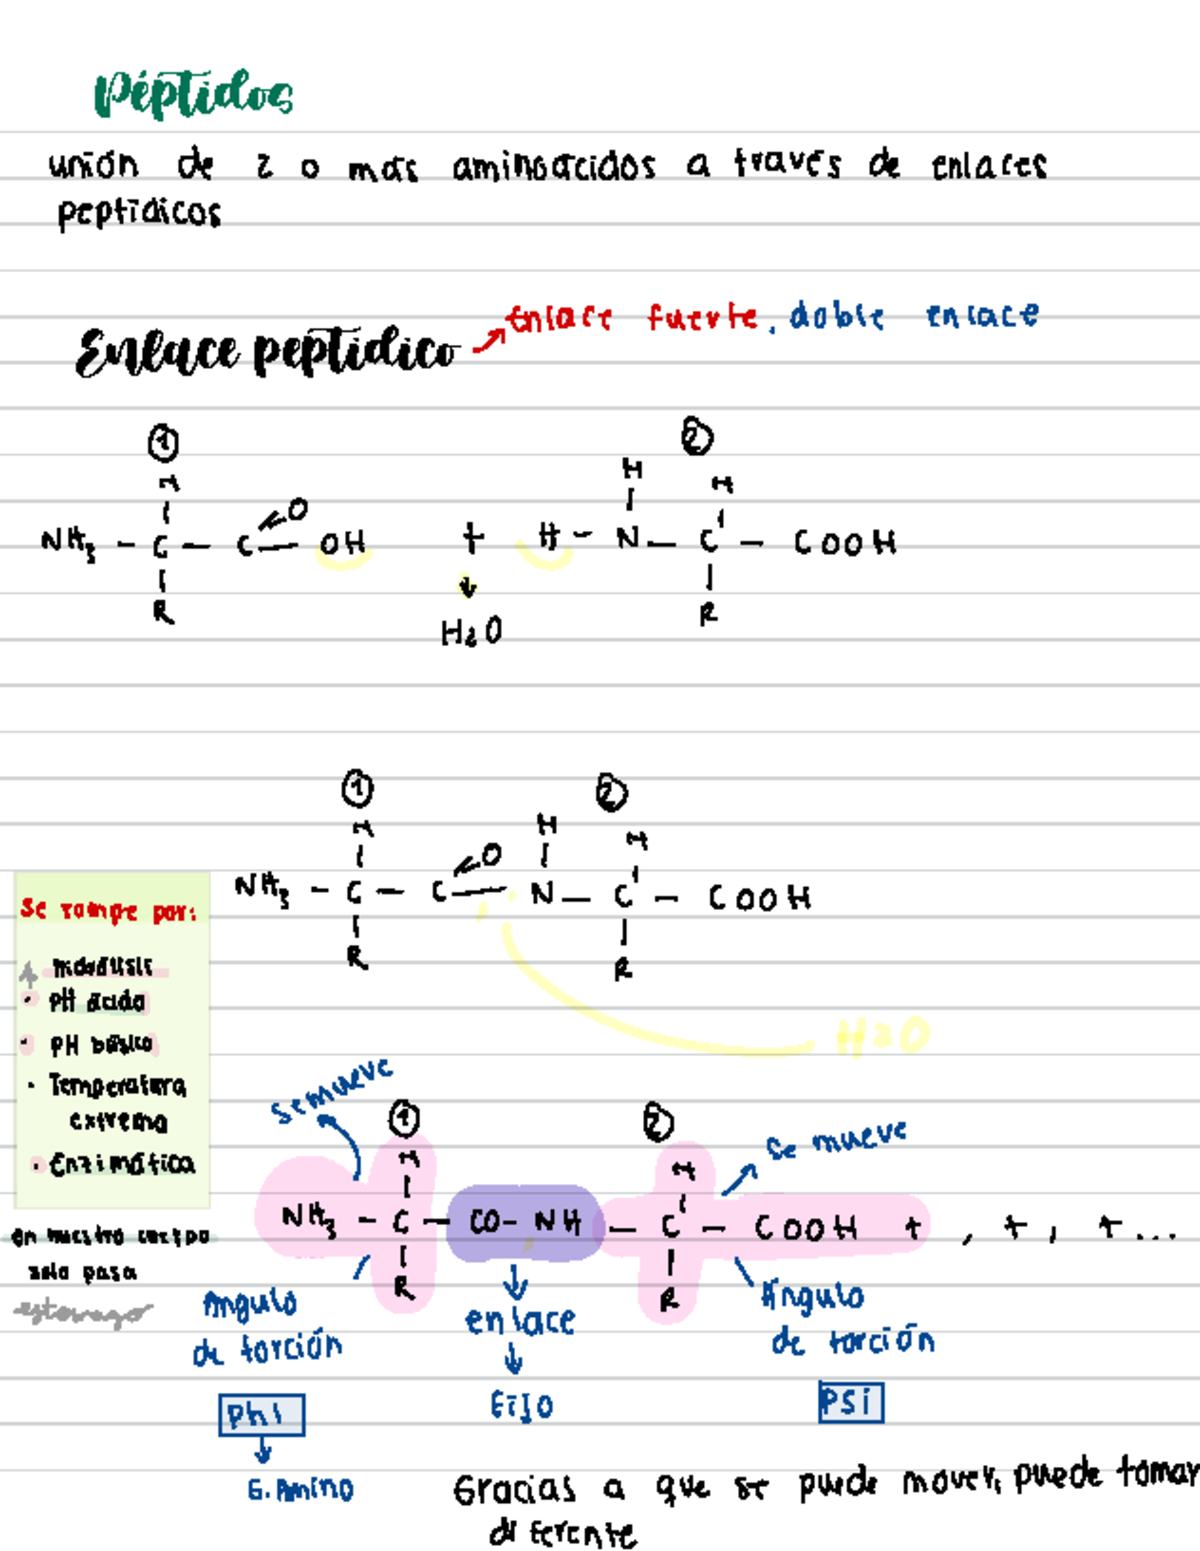 Péptidos
unión de 2 o más aminoácidos a través de enlaces
peptídicos
Enlace peptídico → Enlace fuerte, doble enlace
① ②
H H H
NH3 - C - C = O OH + H - N - C - COOH
R R
H2O
① ②
H H H
NH3 - C - C = O - N - C - COOH
R R
H2O
Se rompe por:
• PH ácido
• PH básico
• Temperatura
extrema
• Enzimática
en nuestro cuerpo
solo pasa
estomago
Se mueve
① ②
Se mueve
H H
NH3 - C - CO - NH - C - COOH + , + , + ...
R R
Angulo
de torción
Phi
G. Amino
enlace
Fijo
Ángulo
de torción
PSi
Gracias a que se puede mover, puede tomar
diferente